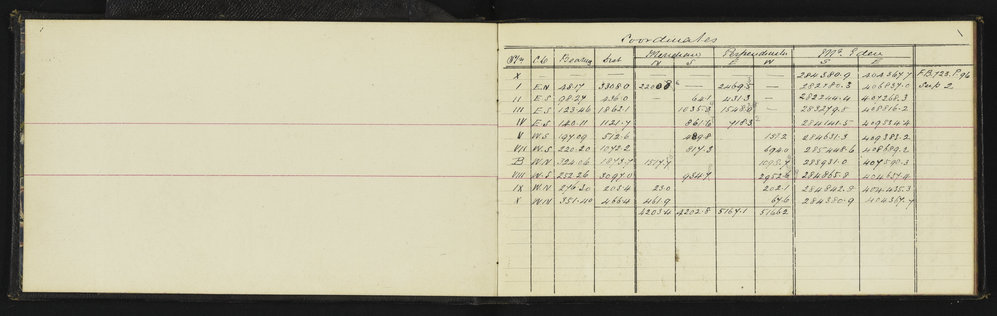 Coordinates
Meridian Perpendicular Mt Eden
Bearing Dist N S E W S E
X — — — — — — 284380.9 404367.7 F.B. 723. P. 96
I E.N 48.17 3308.0 2200.8 — 2469.5 — 282180.3 406837.0
II E.S 98.27 436.0 64.1 431.3 — 282244.4 407268.3
III E.S 123.46 1862.1 1035.3 1548.0 — 283279.5 408816.2
IV E.S 140.11 1121.7 861.6 718.3 284141.5 409534.4
V W.S 197.09 512.6 489.8 151.2 284631.3 409383.2
VII W.S 220.20 1072.2 817.3 694.0 285448.6 408689.2
B W.N 324.06 1873.7 1517.7 1098.7 283931.0 407590.3
VIII W.S 252.26 3097.0 934.7 2952.6 284865.8 404637.9
IX W.N 276.30 203.4 23.0 202.1 284842.8 404435.3
X W.N 351.40 466.4 461.9 67.6 284380.9 404367.7
4203.4 4202.8 5167.1 5166.2